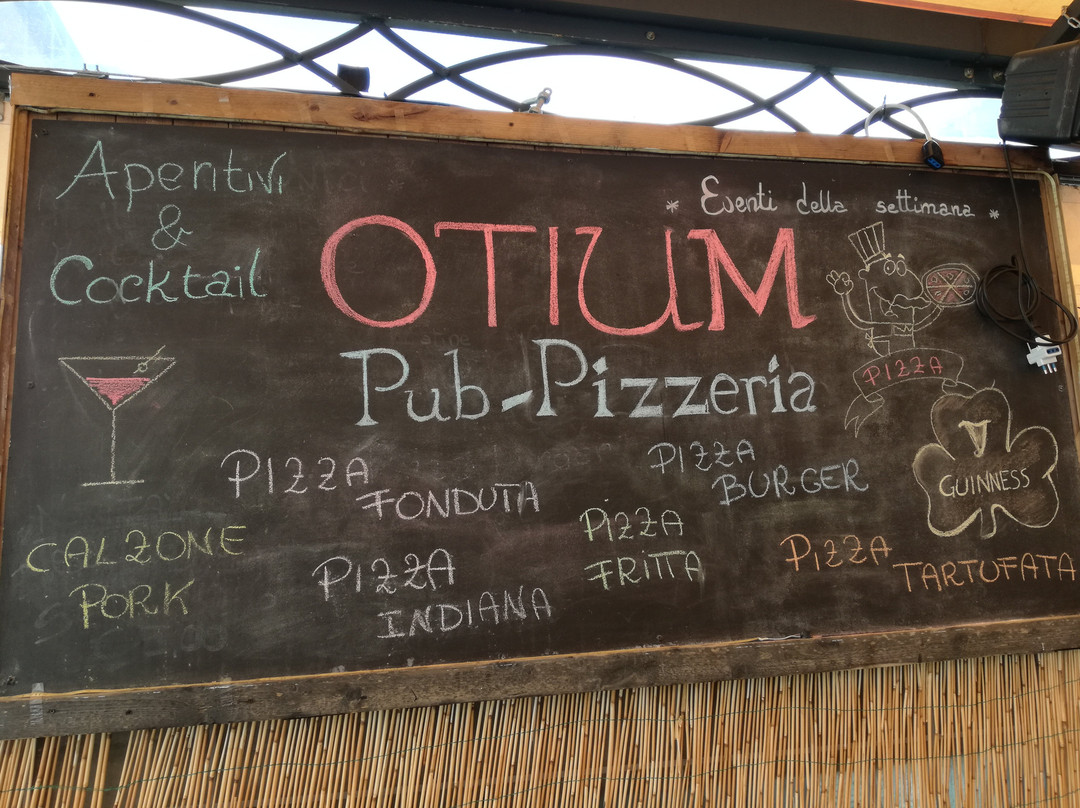 Aperitivi
&
Cocktail
* Eventi della settimana *
OTIUM
Pub-Pizzeria
PIZZA
GUINNESS
PIZZA
FONDUTA
PIZZA
BURGER
CALZONE
PORK
PIZZA
INDIANA
PIZZA
FRITTA
PIZZA
TARTUFATA